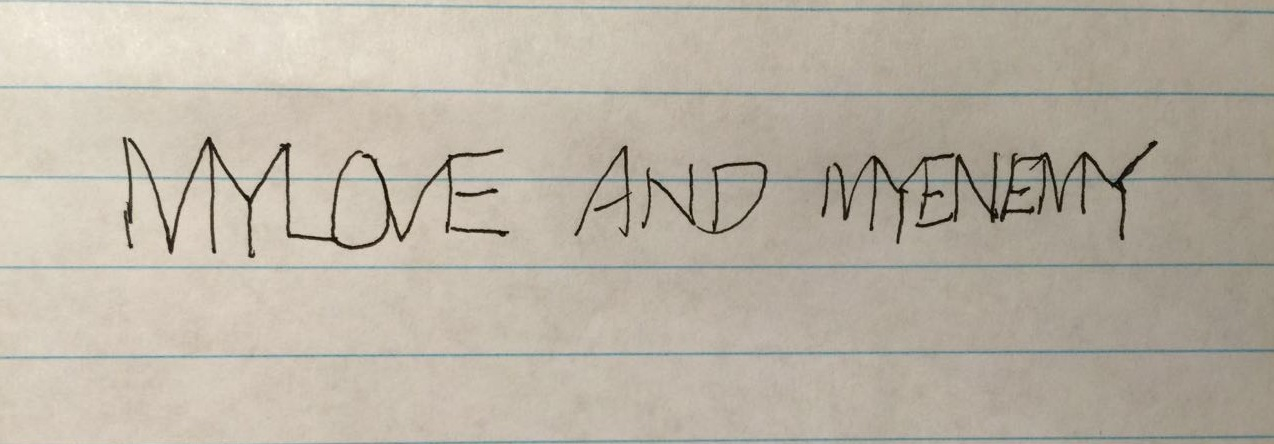 MYLOVE AND MYENEMY